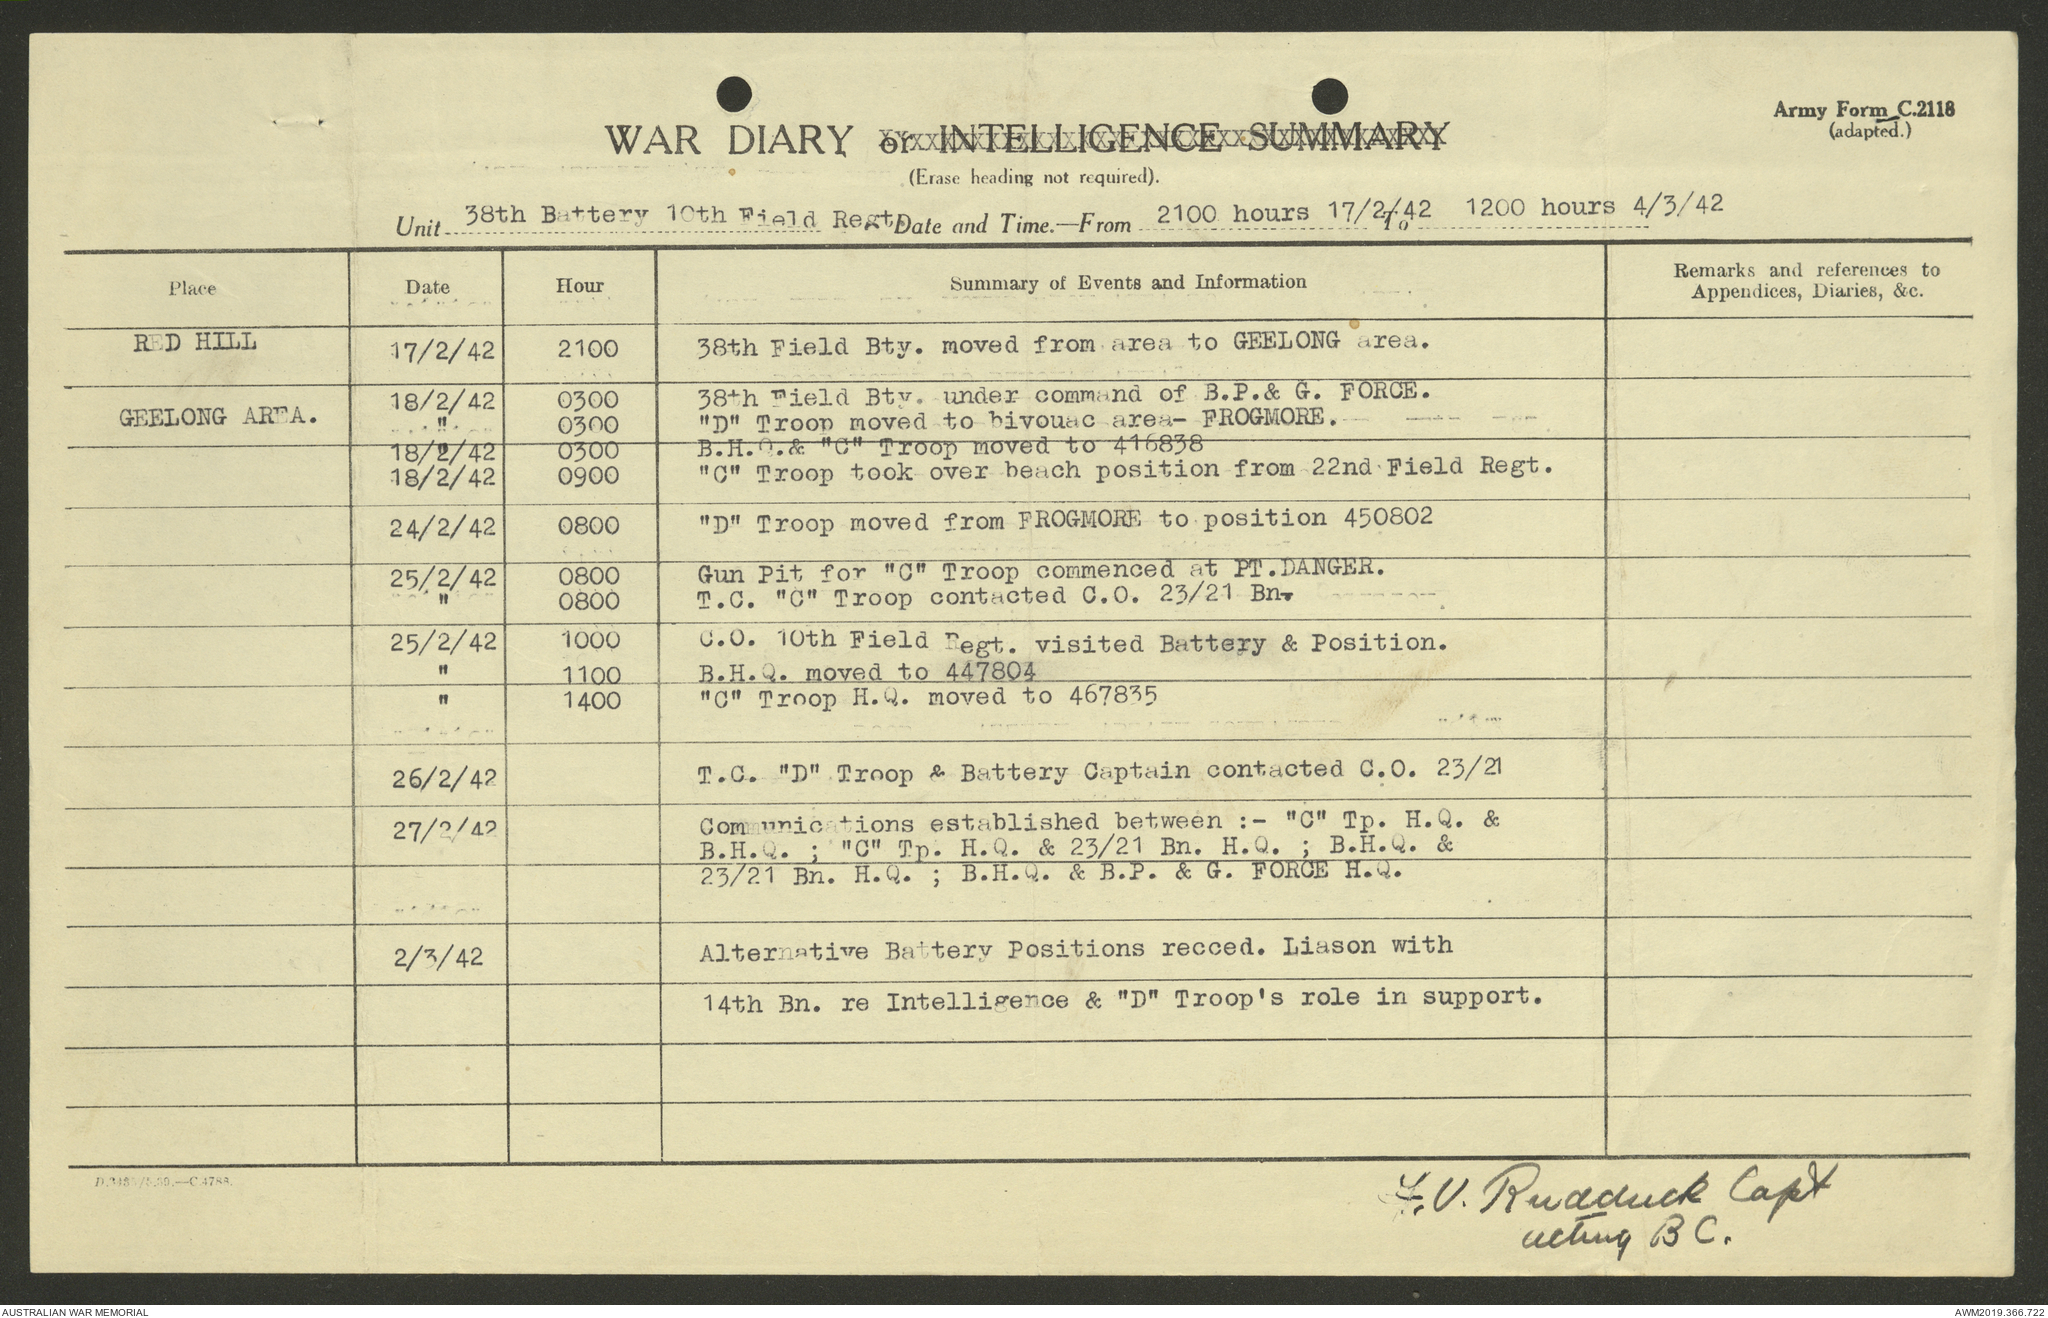 Army Form C.2118
(adapted.)
WAR DIARY or INTELLIGENCE SUMMARY
(Erase heading not required).
Unit 38th Battery 10th Field Regt. Date and Time.—From 2100 hours 17/2/42 To 1200 hours 4/3/42
Place Date Hour Summary of Events and Information Remarks and references to
Appendices, Diaries, &c.
RED HILL 17/2/42 2100 38th Field Bty. moved from area to GEELONG area.
18/2/42 0300 38th Field Bty. under command of B.P.& G. FORCE.
GEELONG AREA. " 0300 "D" Troop moved to bivouac area- FROGMORE.
18/2/42 0300 B.H.Q.& "C" Troop moved to 416838
18/2/42 0900 "C" Troop took over beach position from 22nd Field Regt.
24/2/42 0800 "D" Troop moved from FROGMORE to position 450802
25/2/42 0800 Gun Pit for "C" Troop commenced at PT.DANGER.
" 0800 T.C. "C" Troop contacted C.O. 23/21 Bn.
25/2/42 1000 C.O. 10th Field Regt. visited Battery & Position.
" 1100 B.H.Q. moved to 447804
" 1400 "C" Troop H.Q. moved to 467835
26/2/42 T.C. "D" Troop & Battery Captain contacted C.O. 23/21
27/2/42 Communications established between :- "C" Tp. H.Q. &
B.H.Q. ; "C" Tp. H.Q. & 23/21 Bn. H.Q. ; B.H.Q. &
23/21 Bn. H.Q. ; B.H.Q. & B.P. & G. FORCE H.Q.
2/3/42 Alternative Battery Positions recced. Liason with
14th Bn. re Intelligence & "D" Troop's role in support.
V. Rudduck Capt
acting B C.
AUSTRALIAN WAR MEMORIAL AWM2019.366.722